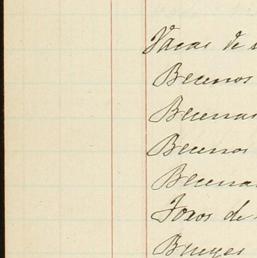 Vacas de
Becerros
Becerras
Becerros
Becerras
Toros de
Bueyes